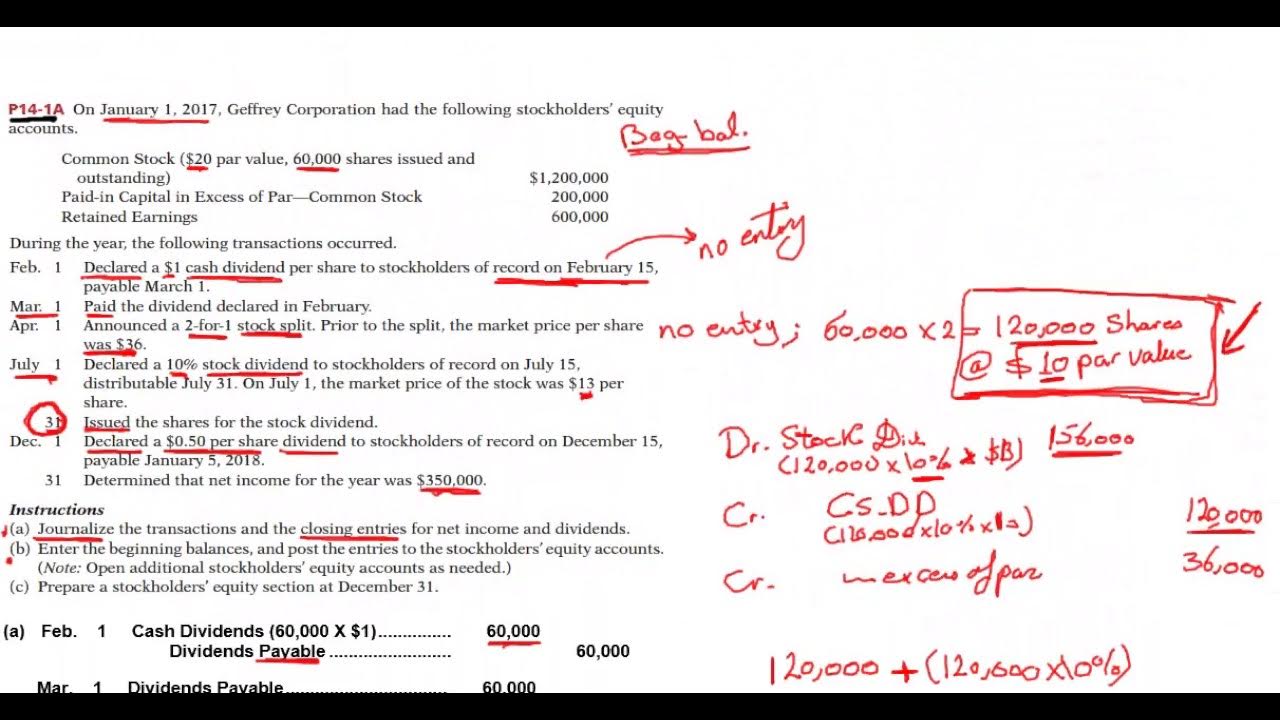 P14-1A On January 1, 2017, Geffrey Corporation had the following stockholders' equity
accounts.
Beg bal.
Common Stock ($20 par value, 60,000 shares issued and
outstanding) $1,200,000
Paid-in Capital in Excess of Par—Common Stock 200,000
Retained Earnings 600,000
During the year, the following transactions occurred.
no entry
Feb. 1 Declared a $1 cash dividend per share to stockholders of record on February 15,
payable March 1.
Mar. 1 Paid the dividend declared in February.
Apr. 1 Announced a 2-for-1 stock split. Prior to the split, the market price per share
was $36.
no entry; 60,000 x 2 = 120,000 Shares
@ $10 par value
July 1 Declared a 10% stock dividend to stockholders of record on July 15,
distributable July 31. On July 1, the market price of the stock was $13 per
share.
31 Issued the shares for the stock dividend.
Dec. 1 Declared a $0.50 per share dividend to stockholders of record on December 15,
payable January 5, 2018.
31 Determined that net income for the year was $350,000.
Dr. Stock Div. 156,000
(120,000 x 10% x $13)
Cr. CS.DD 120,000
(120,000 x 10% x 10)
Cr. in excess of par 36,000
Instructions
(a) Journalize the transactions and the closing entries for net income and dividends.
(b) Enter the beginning balances, and post the entries to the stockholders' equity accounts.
(Note: Open additional stockholders' equity accounts as needed.)
(c) Prepare a stockholders' equity section at December 31.
(a) Feb. 1 Cash Dividends (60,000 X $1)............... 60,000
Dividends Payable .......................... 60,000
120,000 + (120,000 x 10%)
Mar. 1 Dividends Payable.................................. 60,000